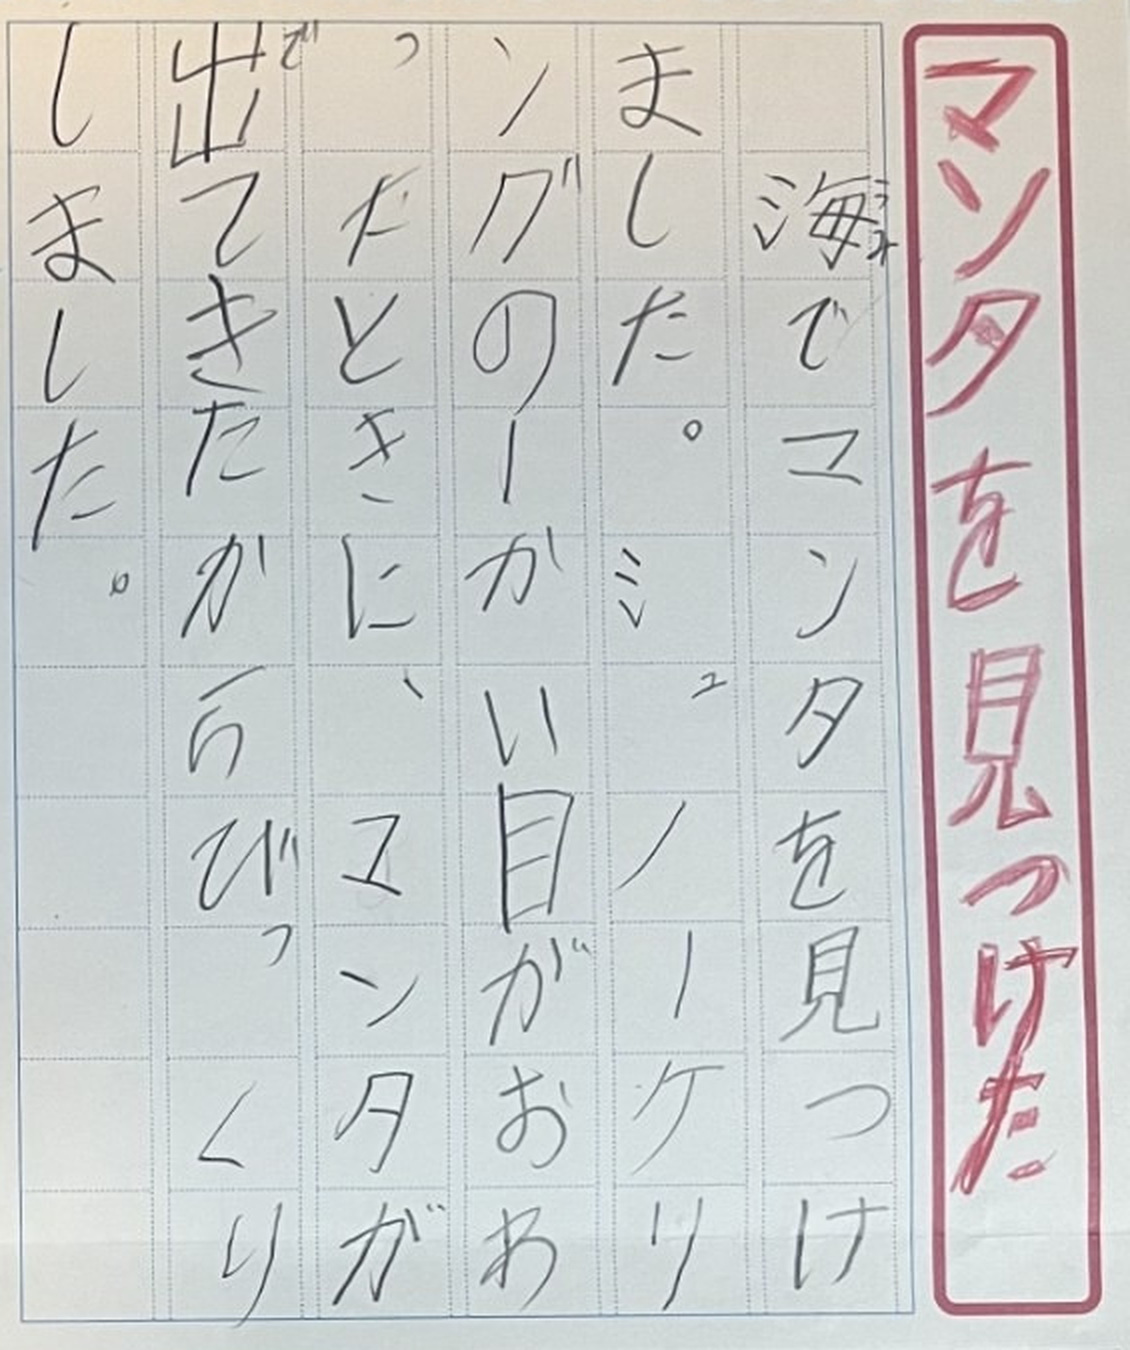 マンタを見つけた
海でマンタを見つけ
ました。シュノーケリ
ングのーかい目がおわ
ったときに、マンタが
出てきたからびっくり
しました。